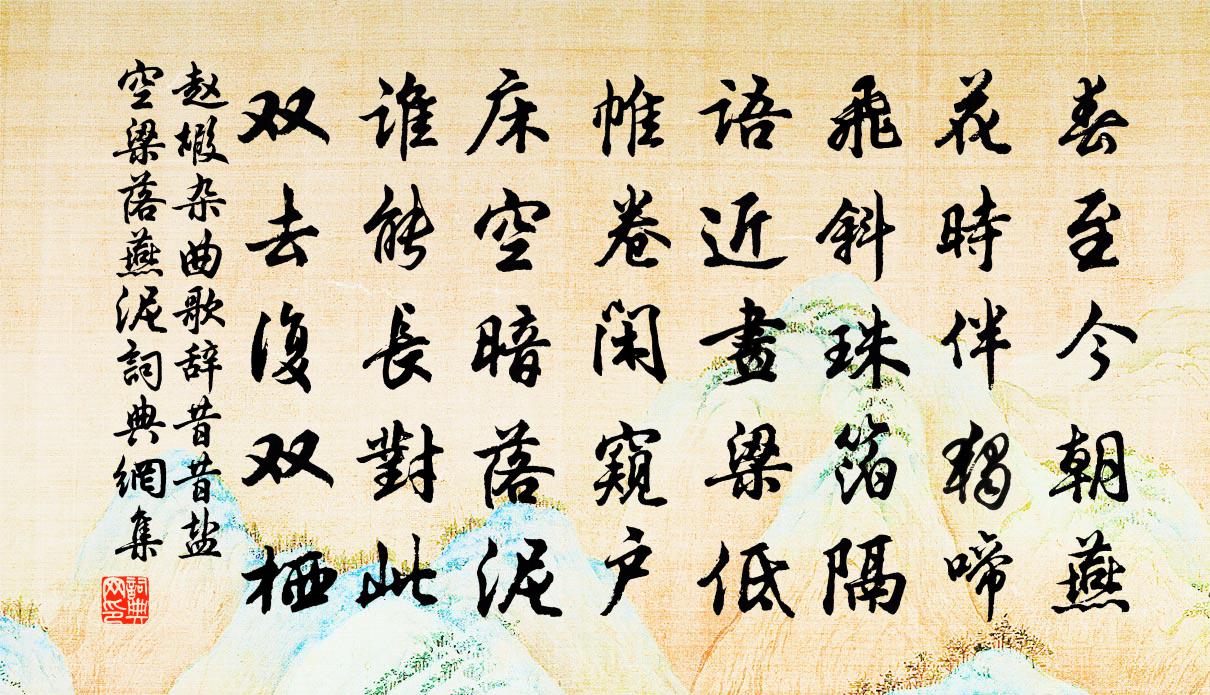 春至今朝燕
花時伴獨啼
飛斜珠箔隔
語近畫梁低
帷卷閑窺户
床空暗落泥
谁能長對此
双去復双栖
赵嘏杂曲歌辞昔昔盐
空梁落燕泥詞典網集